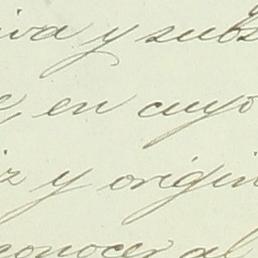 iva y subs
e, en cuyo
iz y origin
conocer al